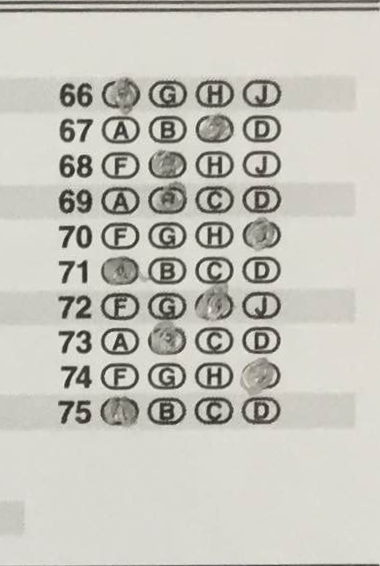 66 F G H J
67 A B C D
68 F G H J
69 A B C D
70 F G H J
71 A B C D
72 F G H J
73 A B C D
74 F G H J
75 A B C D